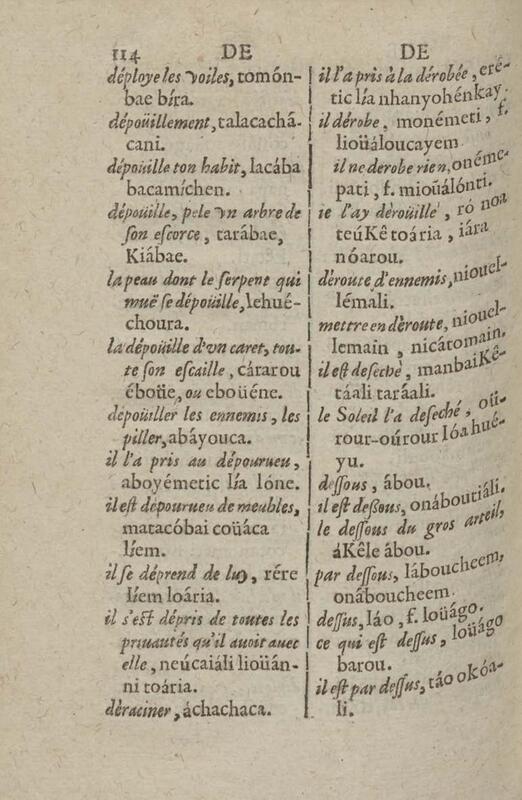 114 DE DE
déploye les voiles, tomón-
bae bíra.
dépoüillement, talacachá-
cani.
dépoüille ton habit, lacába
bacamíchen.
dépoüille, pele vn arbre de
son escorce, tarábae,
Kiábae.
la peau dont le serpent qui
muë se dépoüille, lehué-
choura.
la dépoüille d'vn caret, tou-
te son escaille, cárarou
éboüe, ou eboüéne.
dépoüiller les ennemis, les
piller, abáyouca.
il l'a pris au dépourueu,
aboyémetic lía lóne.
il est dépourueu de meubles,
matacóbai coüáca
líem.
il se déprend de luy, rére
líem loária.
il s'est dépris de toutes les
priuautés qu'il auoit auec
elle, neúcaiáli lioüán-
ni toária.
déraciner, áchachaca.
il l'a pris à la dérobée, eré-
tic lía nhanyohénkay.
il dérobe, monémeti, f.
lioüáloucayem.
il ne derobe rien, onéme-
pati, f. mioüálónti.
ie l'ay déroüillé, ró noa
teúKê toária, iára
nóarou.
déroute d'ennemis, niouel-
lémali.
mettre en déroute, niouel-
lemain, nicátomain.
il est deseché, manbaiKê-
táali taráali.
le Soleil l'a deseché, oú-
rour-oúrour lóahué-
yu.
dessous, ábou.
il est deßous, onáboutiáli.
le dessous du gros arteil,
áKêle ábou.
par dessous, láboucheem,
onáboucheem.
dessus, láo, f. loüágo.
ce qui est dessus, loüágo
barou.
il est par dessus, táo okóa-
li.